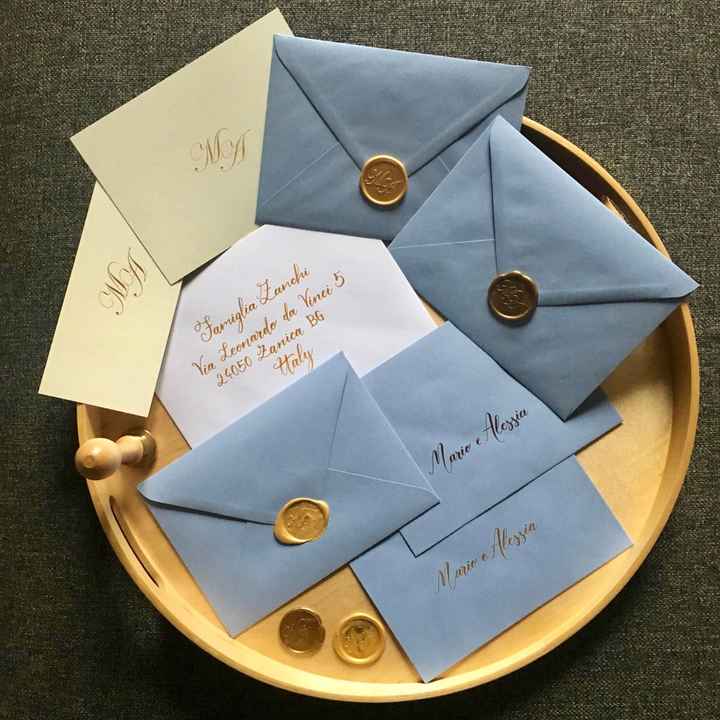 MA
MA
Famiglia Zanchi
Via Leonardo da Vinci 5
24050 Zanica BG
Italy
Mario e Alessia
Mario e Alessia